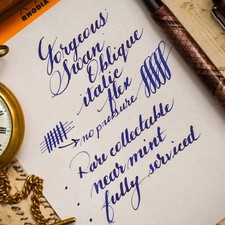 RHODIA
Gorgeous
Swan
Oblique
italic
flex
no pressure
Rare collectable
near mint
fully serviced